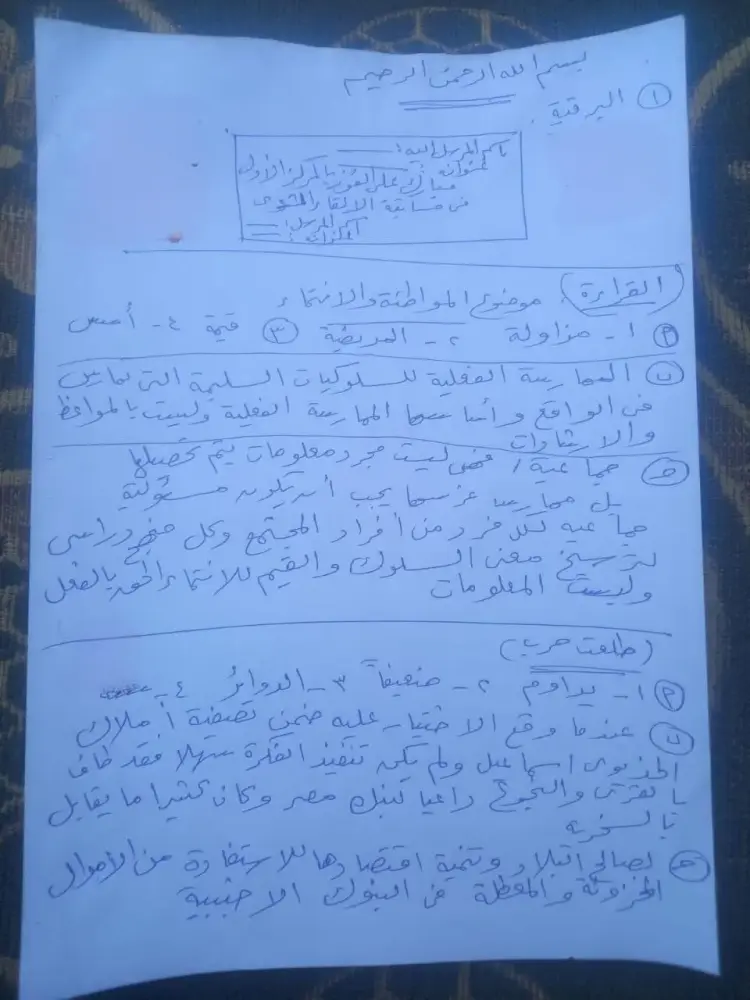 بسم الله الرحمن الرحيم
١ البرقية :
باسم المرسل اليه :
عنوانه :
مبارك على الفوز بالمركز الأول
فى مسابقة الالقاء
اسم المرسل :
عنوانه :
(القراءة) : موضوع المواطنة والانتماء
م ١- مزاولة ٢- المريضة ٣ قيمة ٤- أسس
ب الممارسة الفعلية للسلوكيات السليمة التى تمارس
فى الواقع وأساسها الممارسة الفعلية وليست بالمواعظ
والارشادات
ج جماعية / فهى ليست مجرد معلومات يتم تحصيلها
بل ممارسة غرسها يجب أن يكون مسئولية
جماعيه لكل فرد من أفراد المجتمع وكل منهج دراسى
لترسيخ معنى السلوك والقيم للانتماء الحق بالفعل
وليست المعلومات
(طلعت حرب)
م ١- يداوم ٢- ضعيفاً ٣- الدوائر ٤-
ب عندما وقع الاختيار عليه ضمن تصفية أملاك
الخديوى اسماعيل ولم يكن تنفيذ الفكرة سهلا فقد طاف
بالقرى والنجوع داعيا لبنك مصر وكان كثيرا ما يقابل
بالسخريه
ج لصالح البلاد وتنمية اقتصادها للاستفادة من الاموال
المخزونة والمعطلة فى البنوك الاجنبية